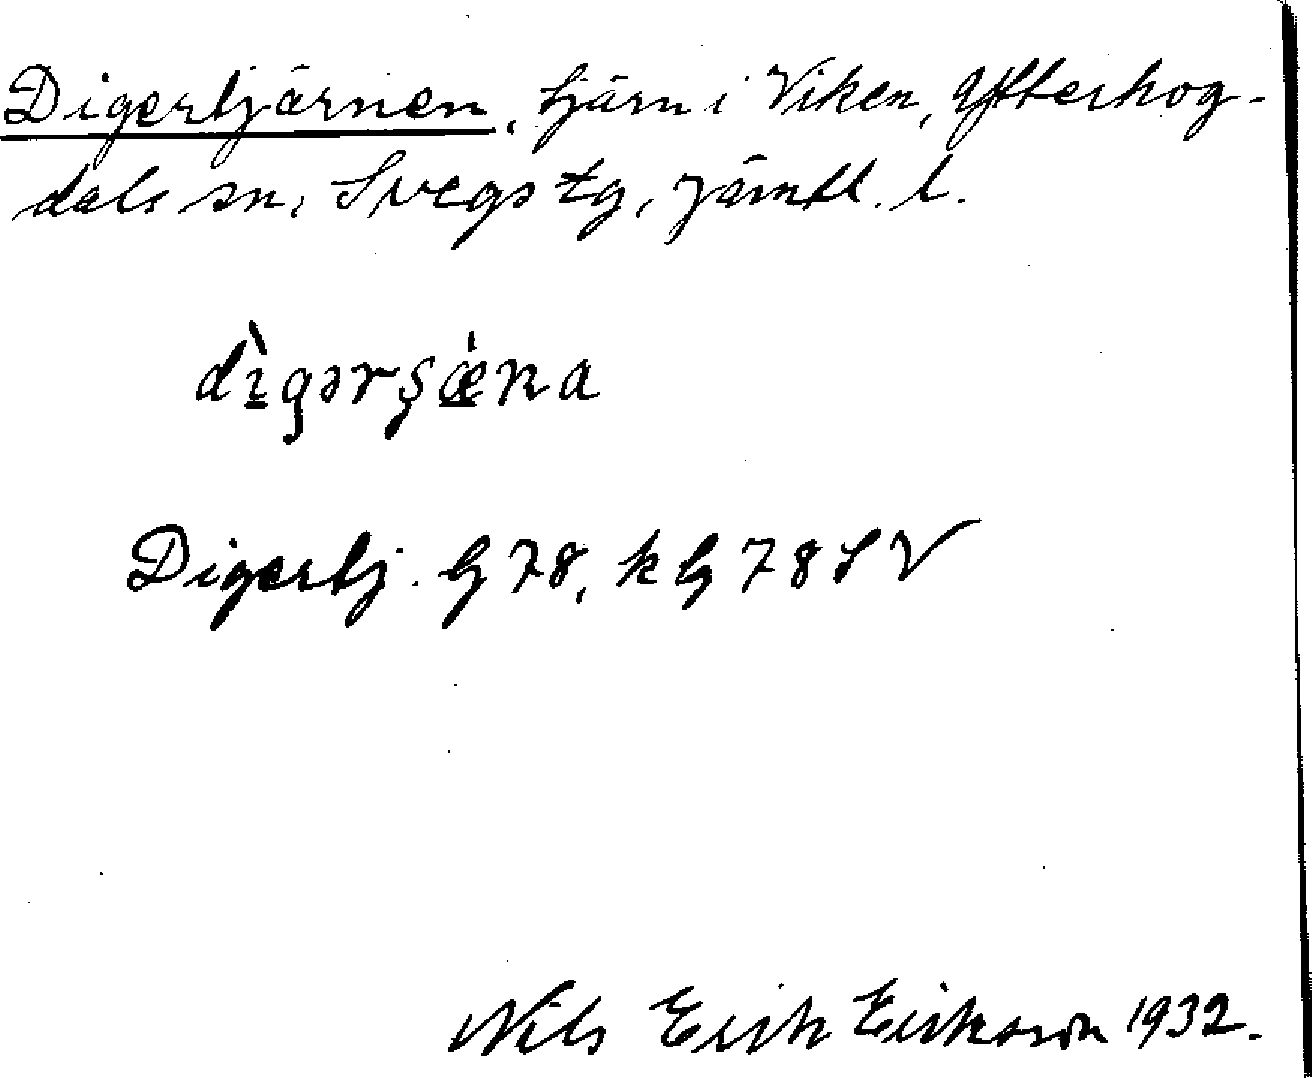 Digertjärnen, tjärn i Viken, Ytterhog-
dals sn, Svegs tg, Jämtl. l.
dı̀gərʂǽna
Digertj. G 78, k G 78 S V
Nils Erik Eriksson 1932.